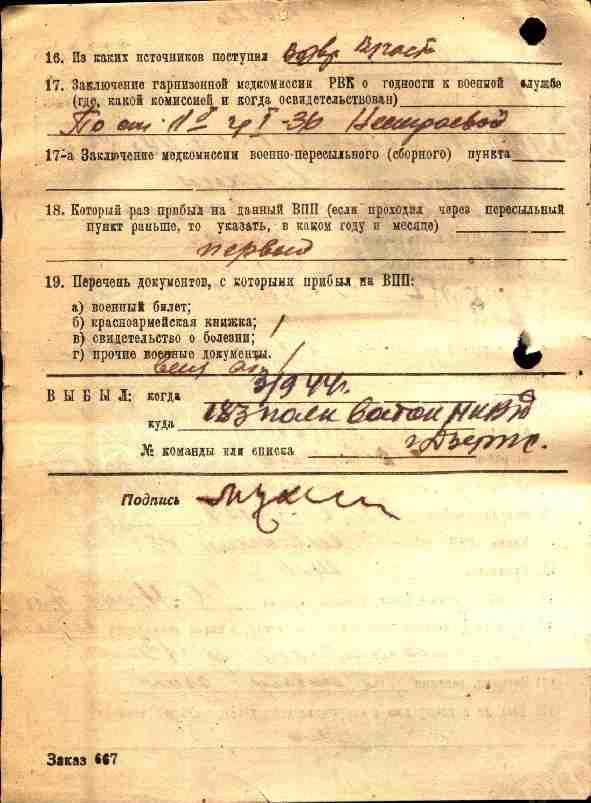 16. Из каких источников поступил
17. Заключение гарнизонной медкомиссии РВК о годности к военной службе
(где, какой комиссией и когда освидетельствован)
По ст.
17-а Заключение медкомиссии военно-пересыльного (сборного) пункта
18. Который раз прибыл на данный ВПП (если проходил через пересыльный
пункт раньше, то указать, в каком году и месяце)
первый
19. Перечень документов, с которыми прибыл на ВПП:
а) военный билет;
б) красноармейская книжка; /
в) свидетельство о болезни;
г) прочие военные документы. /
ВЫБЫЛ: когда 3/9 44г.
куда 183 полк НКВД
№ команды или списка г. Дзерж.
Подпись
Заказ 667